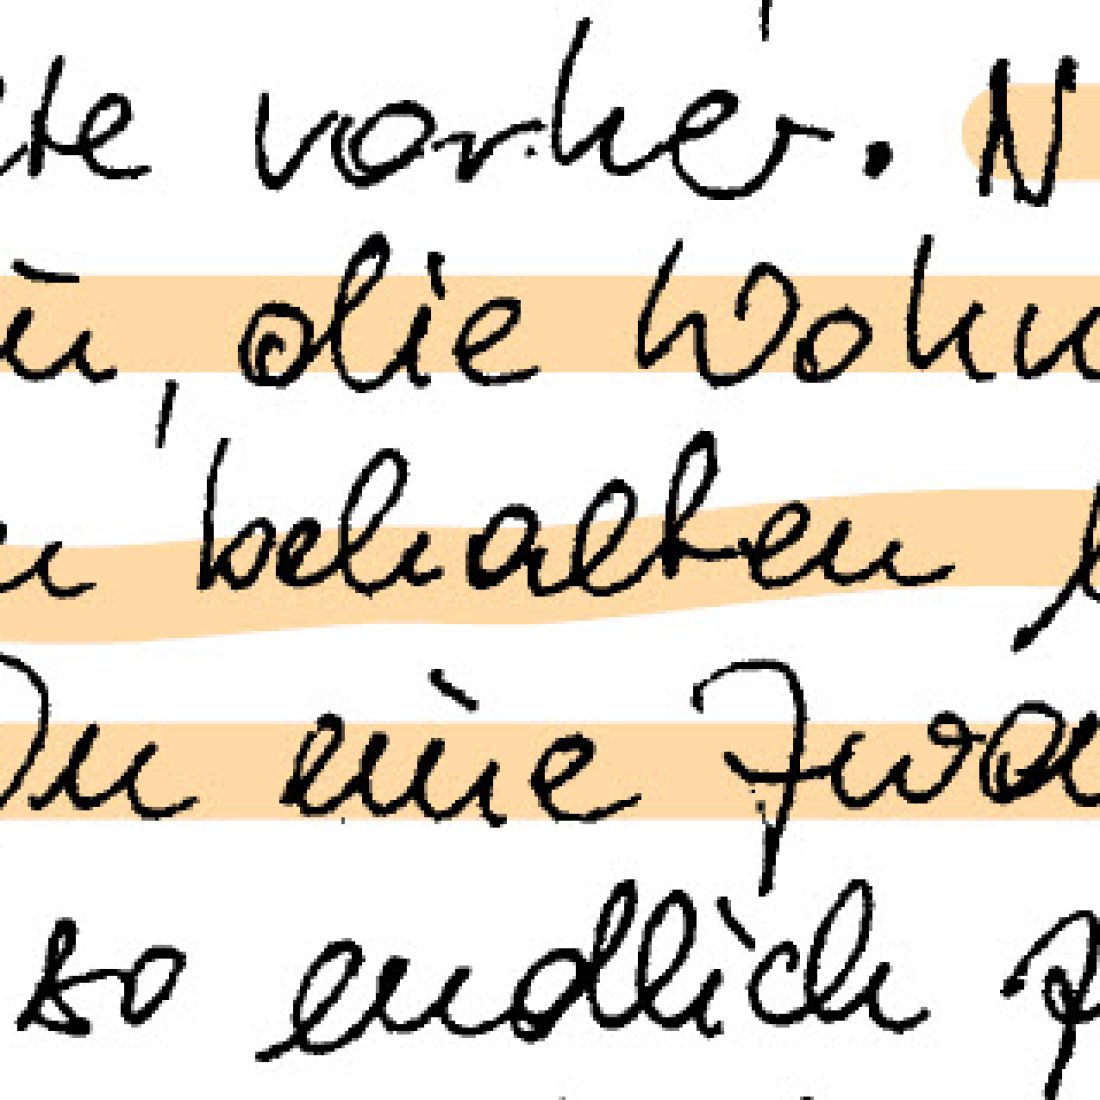 vorher. N
die Wohn
behalten
Du eine Zwa
so endlich